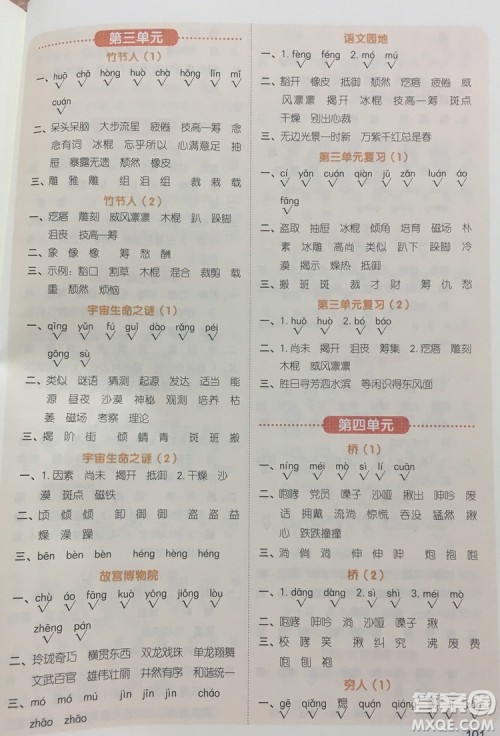 第三单元
竹节人（1）
一、huō chā hòng huò chà hōng lǐn mǐ
cuán
二、呆头呆脑 大步流星 疲倦 技高一筹 念
念有词 冰棍 忘乎所以 心满意足 抽
屉 暴露无遗 颓然 橡皮
三、雕 雅 雕 组 沮 组 裁 裁 载
竹节人（2）
一、疙瘩 雕刻 威风凛凛 木棍 趴 跺脚
沮丧 技高一筹
二、象 像 橡 筹 愁 酬
三、示例：豁口 割草 木棍 混合 裁剪 载
重 颓然 烦恼
宇宙生命之谜（1）
一、qīng yǔn fú guǐ dài rǎng péi
gōng sù
二、类似 谜语 猜测 起源 发送 适当
昼夜 观测 斑点 大气 适应 供给 枯
萎 磁场 考察 理论
三、揭 阶 街 倾 蜻 青 斑 斑 搬
宇宙生命之谜（2）
一、1. 因素 尚未 揭开 抵御 2. 干燥 沙
漠 斑点 磁铁
二、顷 倾 倾 卸 御 御 盗 盗 益
燥 澡 燥
三、bēn bèn bèn hè hē hè
故宫博物院
一、chù jù áo fáng kuò yǎn jiǒng lòu
zhēng pán
二、玲珑奇巧 横贯东西 双龙戏珠 单龙飞舞
文武百官 雄伟壮丽 井然有序 和谐统一
三、mó mó mú jìn jǐn jìn chāo
zhāo zhāo
语文园地
一、1. fèng féng 2. mó mú
二、豁开 橡皮 抵御 抽屉 颓然 疲倦 威
风凛凛 揭开 冰棍 技高一筹 斑点
干燥 别出心裁
三、无边光景一时新 万紫千红总是春
第三单元复习（1）
一、cí yān cuán qián jù zhēng ǎn
fáng
二、盗取 抽屉 冰棍 抵御 培育 磁场 朴
素 谜语 倾斜 趴下 跺脚 疲倦 沙
漠 揭示 燥热 抵御
三、搬 斑 斑 裁 才 财 筹 仇 愁
第三单元复习（2）
一、1. huō huò 2. bó báo
二、1. 尚未 揭开 沮丧 筹集 2. 疙瘩 雕刻
威风凛凛
三、胜日寻芳泗水滨 等闲识得东风面
第四单元
桥（1）
一、níng méi mò sì lí cuān
二、咆哮 党员 嗓子 沙哑 揪出 呻吟 废
话 拥戴 流淌 惊慌 吞没 放肆 揪
心 跌跌撞撞
三、淌 倘 淌 伸 呻 呻 炮 抱 咆
桥（2）
一、1. dāng dàng 2. méi mò
二、咆哮 呻吟 嗓子 党员 沙哑 揪
三、校 哮 笑 揪 纠 究 沸 废 费
咆 刨 袍
穷人（1）